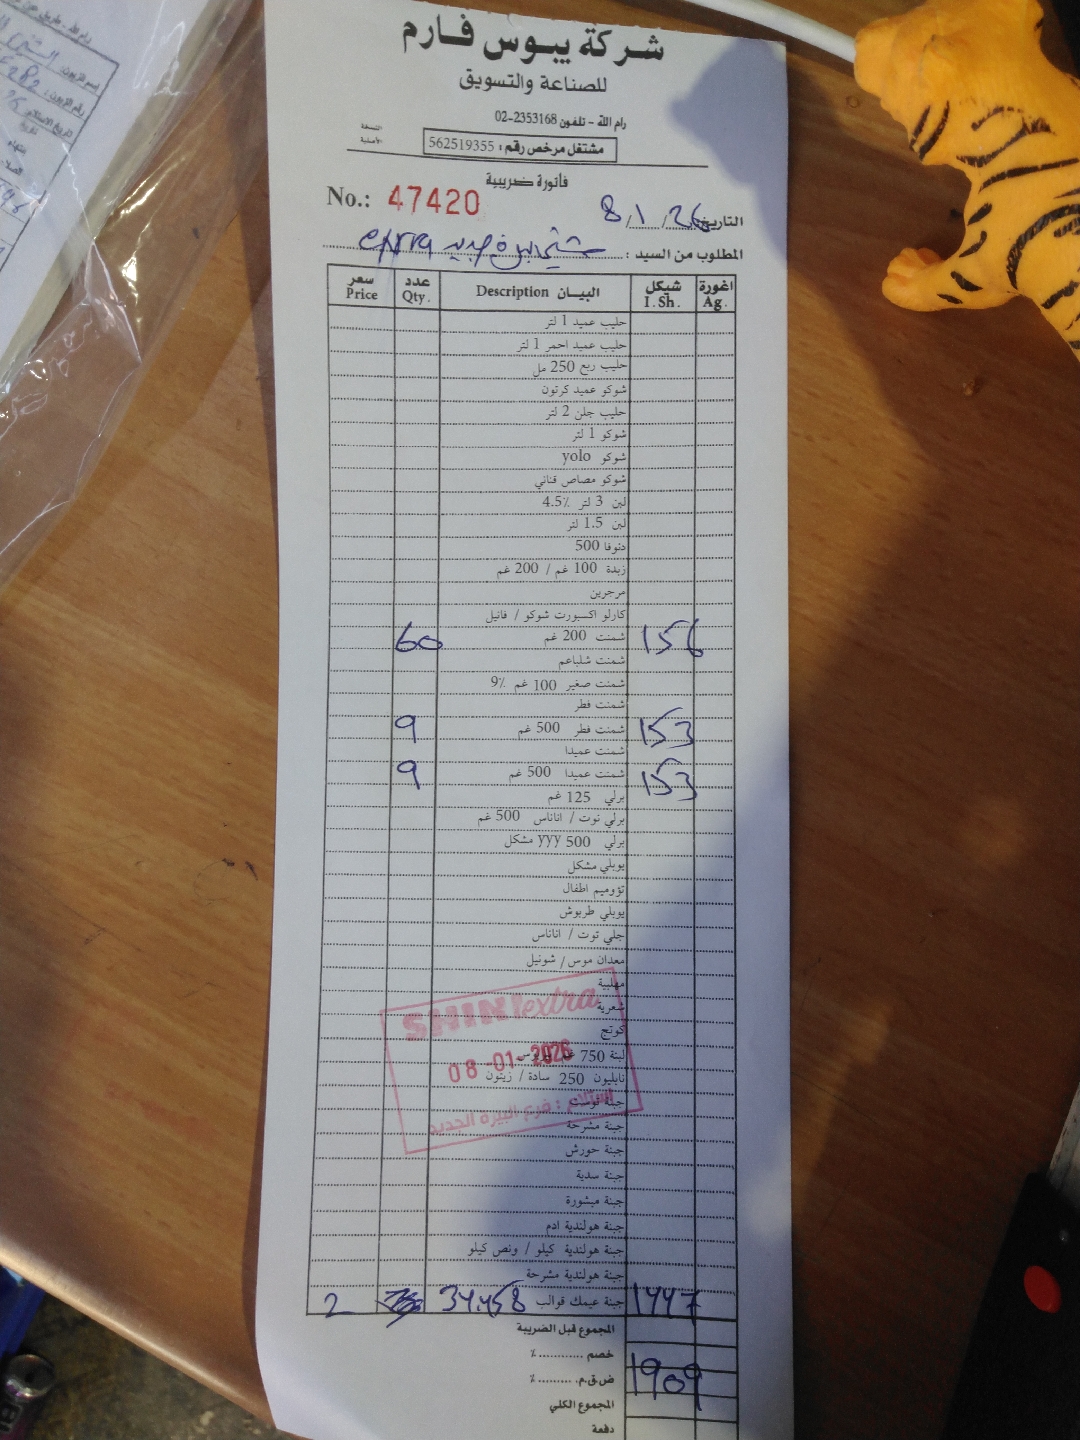 شركة يبوس فارم
للصناعة والتسويق
رام الله - تلفون 02-2353168
النسخة الأصلية
مشتغل مرخص رقم : 562519355
فاتورة ضريبية
No.: 47420
التاريخ 8/1/26
المطلوب من السيد : extra جديد
سعر Price عدد Qty. البيـــان Description شيكل I.Sh. اغورة Ag.
حليب عميد 1 لتر
حليب عميد احمر 1 لتر
حليب ربع 250 مل
شوكو عميد كرتون
حليب جلن 2 لتر
شوكو 1 لتر
شوكو yolo
شوكو مصاص قناني
لبن 3 لتر 4.5٪
لبن 1.5 لتر
دنوفا 500
زبدة 100 غم / 200 غم
مرجرين
كارلو اكسبورت شوكو / فانيل
60 شمنت 200 غم 156
شمنت شلباعم
شمنت صغير 100 غم 9٪
شمنت فطر
9 شمنت فطر 500 غم 153
شمنت عميدا
9 شمنت عميدا 500 غم 153
برلي 125 غم
برلي توت / اناناس 500 غم
برلي 500 yyy مشكل
يوبلي مشكل
تؤوميم اطفال
يوبلي طربوش
جلي توت / اناناس
معدان موس / شونيل
مهلبية
شعرية
كوتج
لبنة 750 غم
نابليون 250 سادة / زيتون
جبنة توست
جبنة مشرحة
جبنة حورش
جبنة سدية
جبنة مبشورة
جبنة هولندية ادم
جبنة هولندية كيلو / ونص كيلو
جبنة هولندية مشرحة
2 34,458 جبنة عيمك قوالب 1447
المجموع قبل الضريبة
خصم ............ ٪
ض.ق.م. ......... ٪ 1909
المجموع الكلي
دفعة
SHINI extra
08-01-2026
استلام : فرع البيره الجديد